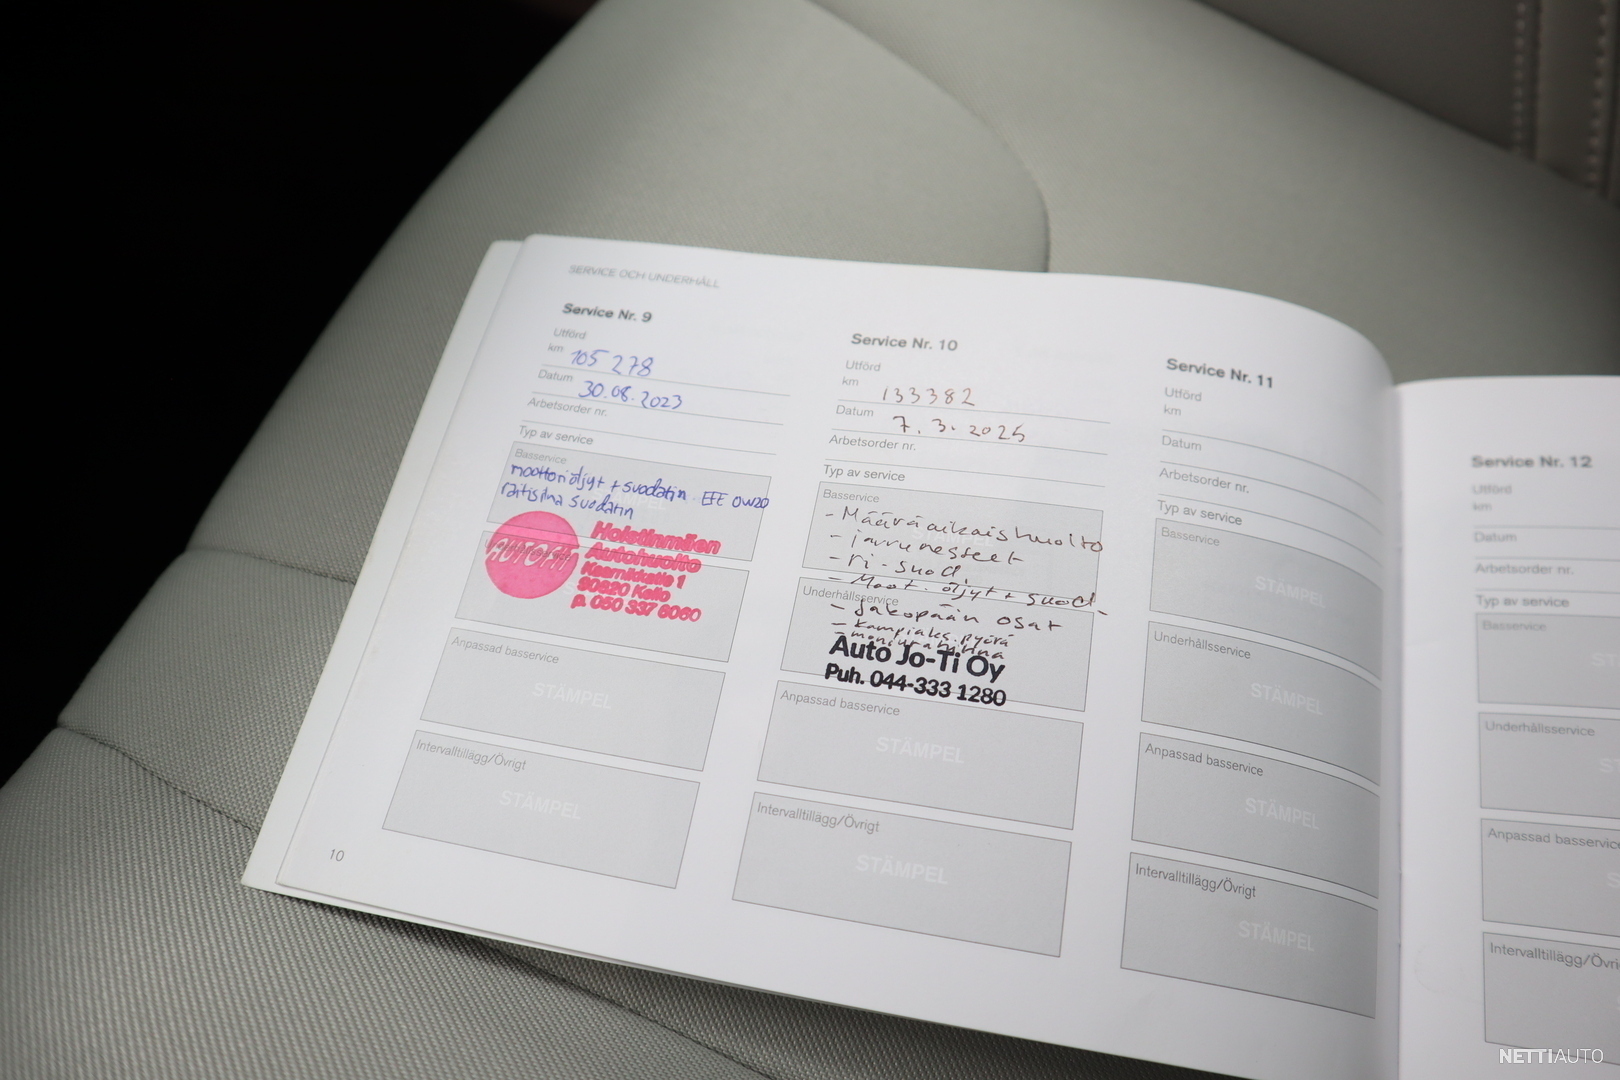 SERVICE OCH UNDERHÅLL
Service Nr. 9
Utförd
km 105 278
Datum 30.08.2023
Arbetsorder nr.
Typ av service
Basservice
moottoriöljyt + suodatin EFE 0W20
raitisilma suodatin
AUTOFIT
Holstinmäen
Autohuolto
90820 Kello
p. 050 337 6060
Anpassad basservice
STÄMPEL
Intervalltillägg/Övrigt
STÄMPEL
10
Service Nr. 10
Utförd
km 133382
Datum 7.3.2025
Arbetsorder nr.
Typ av service
Basservice
- Määräaikaishuolto
- jarrunesteet
- ri-suod.
- Moot. öljyt + suod.
Underhållsservice
- Jakopään osat
- kampiaks. pyörä
Auto Jo-Ti Oy
Puh. 044-333 1280
Anpassad basservice
STÄMPEL
Intervalltillägg/Övrigt
STÄMPEL
Service Nr. 11
Utförd
km
Datum
Arbetsorder nr.
Typ av service
Basservice
STÄMPEL
Underhållsservice
STÄMPEL
Anpassad basservice
STÄMPEL
Intervalltillägg/Övrigt
STÄMPEL
Service Nr. 12
Utförd
km
Datum
Arbetsorder nr.
Typ av service
Basservice
ST
Underhållsservice
ST
Anpassad basservice
S
Intervalltillägg/Övri
NETTIAUTO